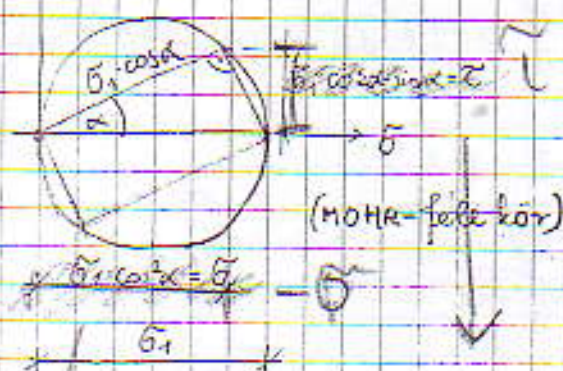 σ₁·cosα
α
σ₁·cosα·sinα=τ
τ
σ
(MOHR-féle kör)
σ₁·cos²α=σ
-σ
σ₁